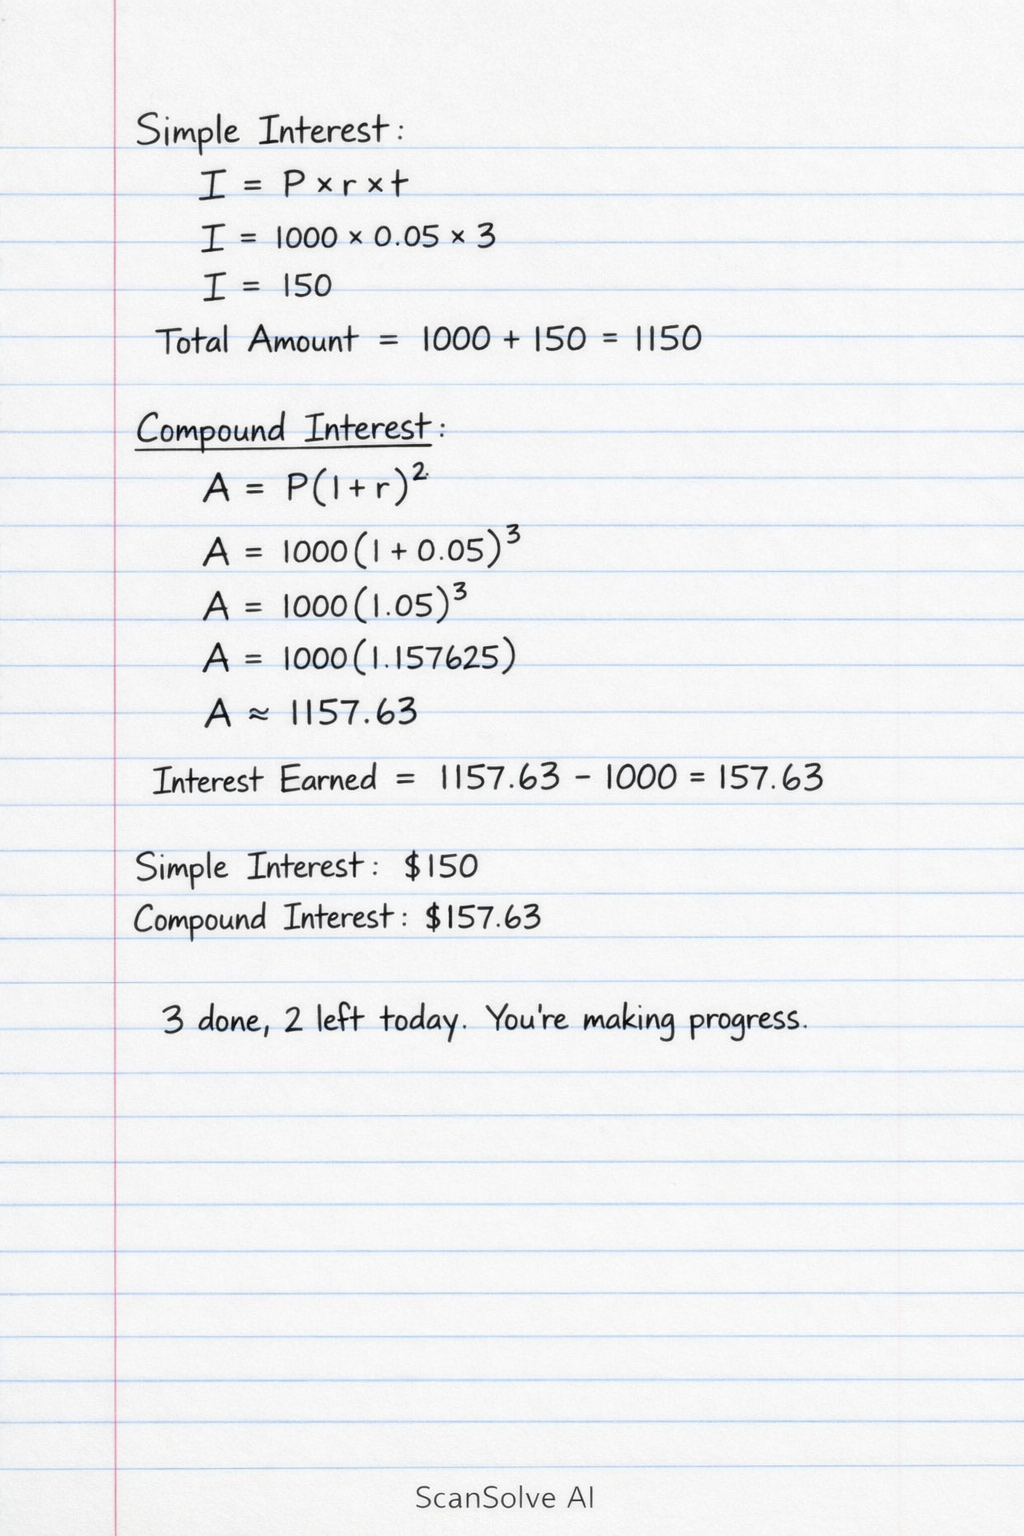 Simple Interest:
I = P × r × t
I = 1000 × 0.05 × 3
I = 150
Total Amount = 1000 + 150 = 1150
Compound Interest:
A = P(1 + r)²
A = 1000(1 + 0.05)³
A = 1000(1.05)³
A = 1000(1.157625)
A ≈ 1157.63
Interest Earned = 1157.63 - 1000 = 157.63
Simple Interest: $150
Compound Interest: $157.63
3 done, 2 left today. You're making progress.
ScanSolve AI